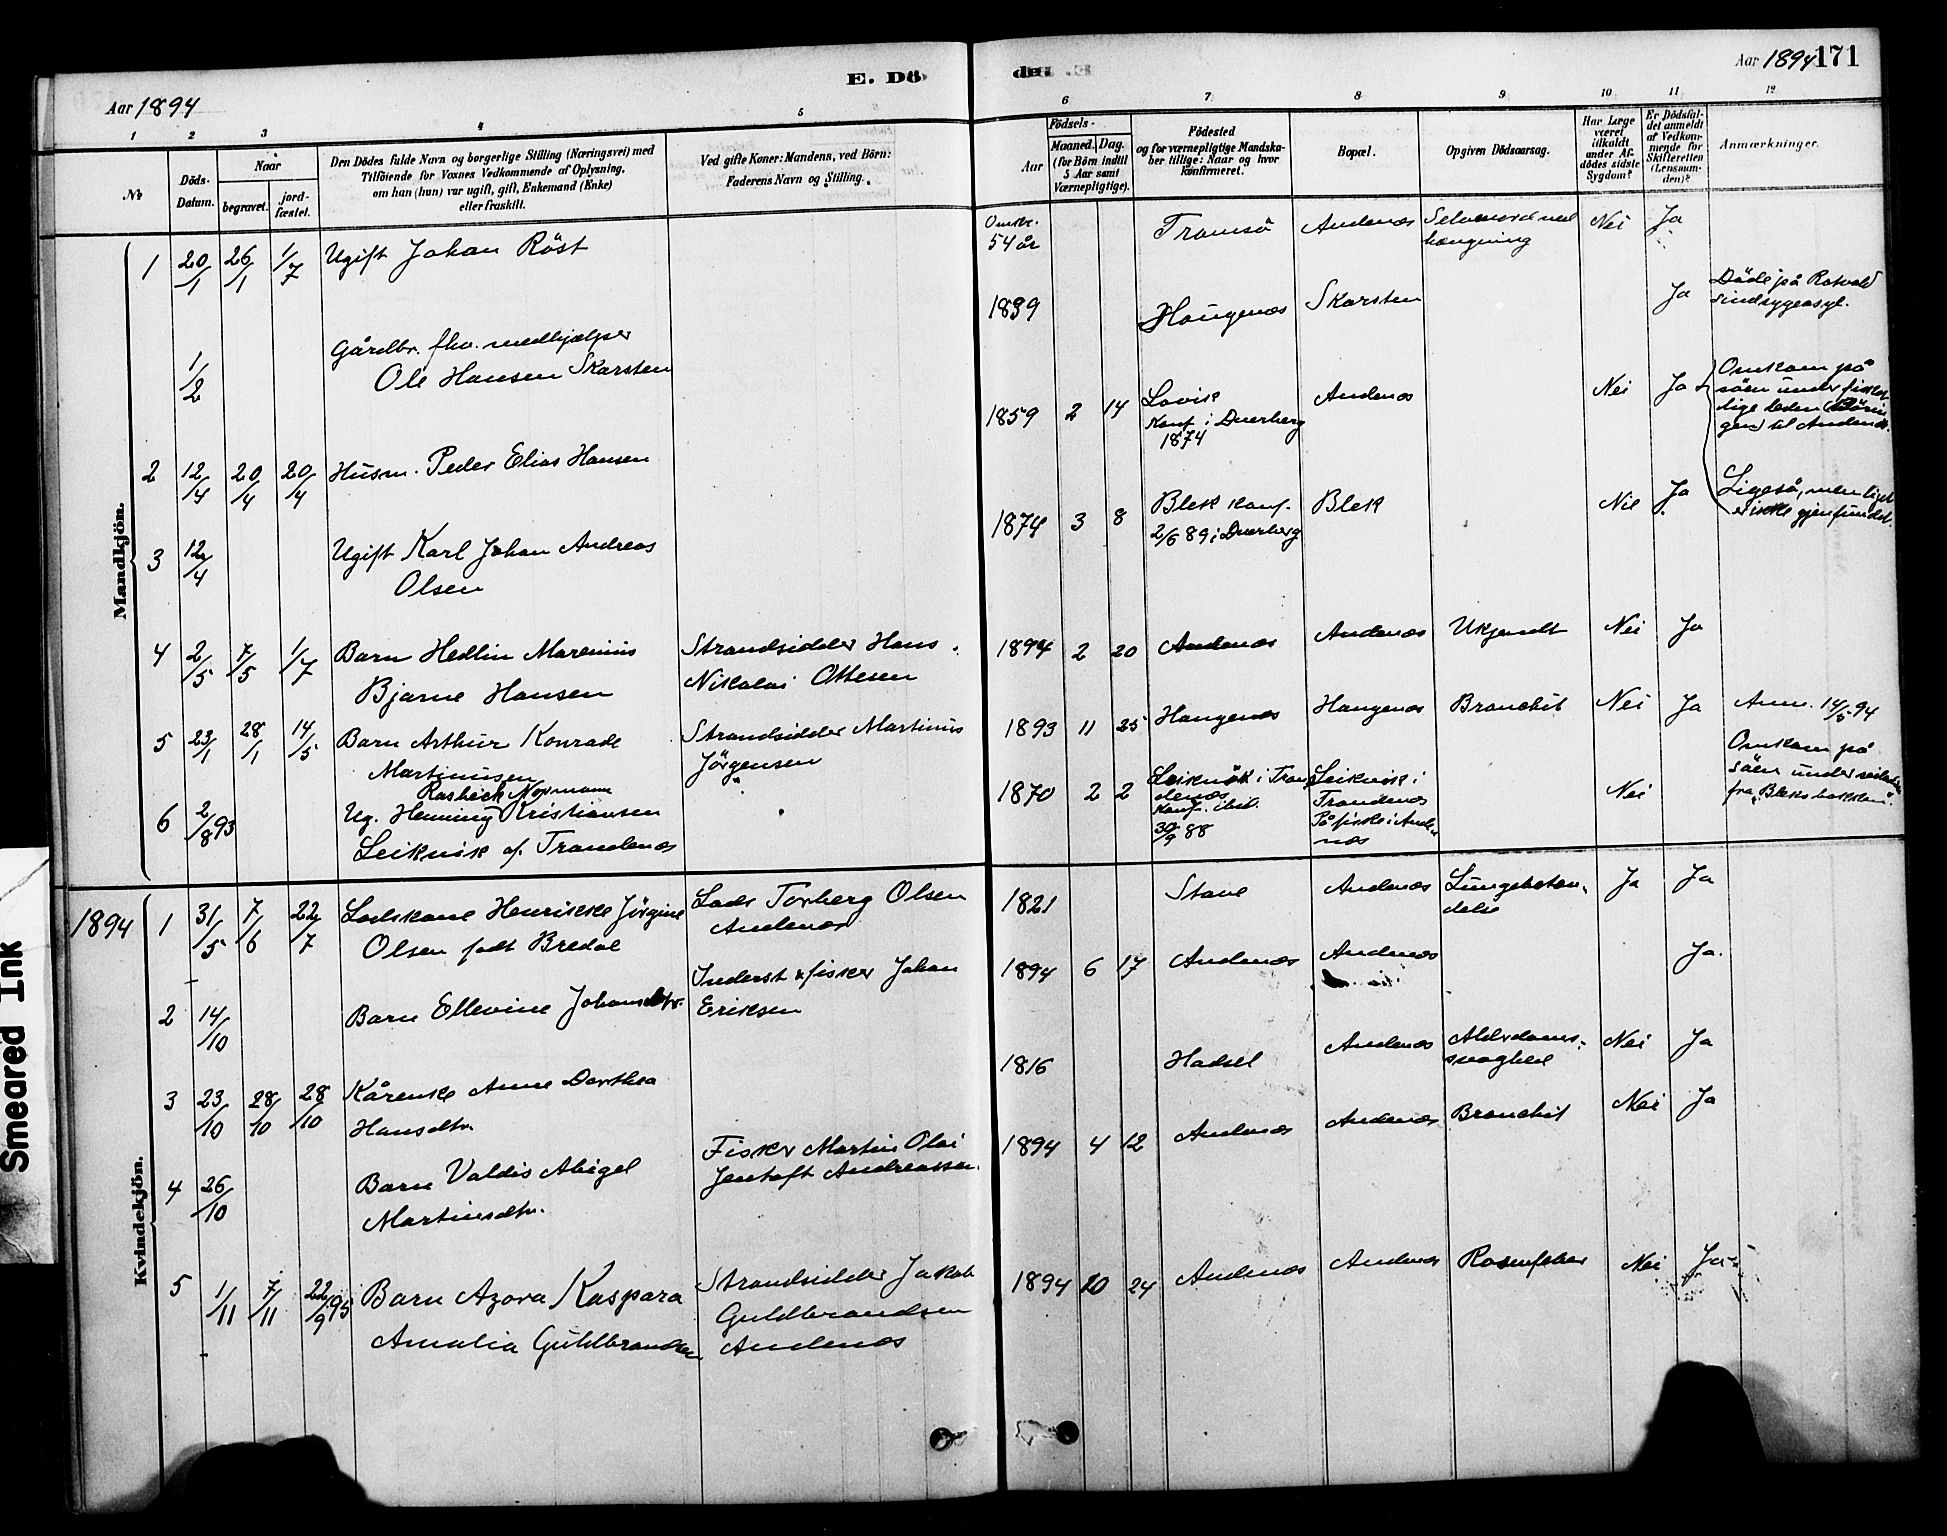 E. Döde.
Aar 1894
Aar 1894 171
1 2 3 4 5 6 7 8 9 10 11 12
No.
Döds-Datum.
Naar
begravet.
jordfæstet.
Den Dödes fulde Navn og borgerlige Stilling (Næringsvei) med
Tilföiende for Voxnes Vedkommende af Oplysning,
om han (hun) var ugift, gift, Enkemand (Enke)
eller fraskilt.
Ved gifte Koner: Mandens, ved Börn:
Faderens Navn og Stilling.
Födsels-
Aar
Maaned. Dag.
(for Börn indtil
5 Aar samt
Værnepligtige).
Födested
og for værnepligtige Mandskaber
tillige: Naar og hvor
konfirmeret.
Bopæl.
Opgiven Dödsaarsag.
Har Læge
været
tilkaldt
under Afdödes
sidste
Sygdom?
Er Dödsfaldet
anmeldt
af Vedkommende
for
Skifteretten
(Lensmanden)?
Anmærkninger.
Mandkjön.
1 20/1 26/1 1/7 Ugift Johan Röst
Omkr. 54 år Tromsö Andenæs Selvmord ved
hængning Nei Ja
1/2 Gårdbr. fhv. medhjælper
Ole Hansen Skarsten
1839 Haugenæs Skarsten Ja Döde på Rotvold
sindsygeasyl.
2 12/4 20/4 20/4 Husm. Peder Elias Hansen
1859 2 14 Lovik
Konf. i Dverberg
1874 Andenæs Nei Ja Omkom på
söen under
til Andenæs.
3 12/4 Ugift Karl Johan Andreas
Olsen
1874 3 8 Blek Konf.
2/6 89 i Dverberg Blek Nei Ja Ligeså, men liget
er ikke gjenfundet.
4 2/5 7/5 1/7 Barn Hedlin Marenius
Bjarne Hansen
Strandsidder Hans
Nikolai Ottesen
1894 2 20 Andenæs Andenæs Ukjendt Nei Ja
5 23/1 28/1 14/5 Barn Arthur Konrade
Martinusen
Strandsidder Martinus
Jörgensen
1893 11 25 Haugenæs Haugenæs Bronchit Nei Ja Anm. 14/5 94
6 2/8 93 Rasbeck Normann
Ug. Henning Kristiansen
Leikvik af Trondenæs
1870 2 2 Leikvik i Trondenæs
Konf. ibid.
30/9 88 Leikvik i
Trondenæs
På fiske i Andenæs
Nei Omkom på
söen under
fra "Bleksbakken".
Kvindekjön.
1894
1 31/5 7/6 22/7 Lodskone Henrikke Jörgine
Olsen födt Bredal
Lods Torberg Olsen
Andenæs
1821 Stave Andenæs Lungebetændelse Ja Ja
2 14/10 Barn Ellevine Johansdtr.
Inderst & fisker Johan
Eriksen
1894 6 17 Andenæs Andenæs Ja.
3 23/10 28/10 28/10 Kårenke Anne Dorthea
Hansdtr.
1816 Hadsel Andenæs Alderdomssvaghed Nei Ja
4 26/10 Barn Valdis Abigel
Martinsdtr.
Fisker Martin Olai
Jentoft Andreassen.
1894 4 12 Andenæs Andenæs Bronchit Nei Ja
5 1/11 7/11 22/9 95 Barn Azora Kaspara
Amalia Guldbrandsen
Strandsidder Jakob
Guldbrandsen
Andenæs
1894 10 24 Andenæs Andenæs Rosenfeber Nei Ja
Smeared Ink